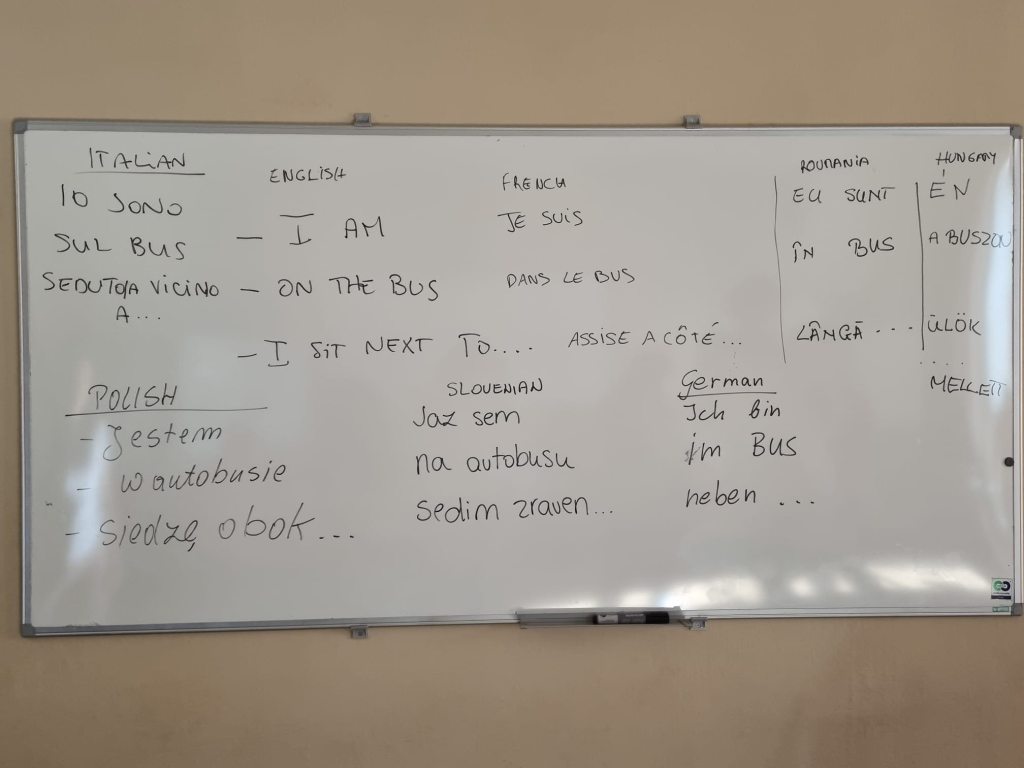 ITALIAN
IO SONO
SUL BUS
SEDUTO/A VICINO
A...
ENGLISH
— I AM
— ON THE BUS
— I SIT NEXT TO....
FRENCH
JE SUIS
DANS LE BUS
ASSISE A CÔTÉ...
ROUMANIA
EU SUNT
ÎN BUS
LÂNGĂ...
HUNGARY
ÉN
A BUSZON
ÜLÖK
....
MELLETT
POLISH
- Jestem
- w autobusie
- siedzę obok...
SLOVENIAN
Jaz sem
na avtobusu
sedim zraven...
German
Ich bin
im BUS
neben ...